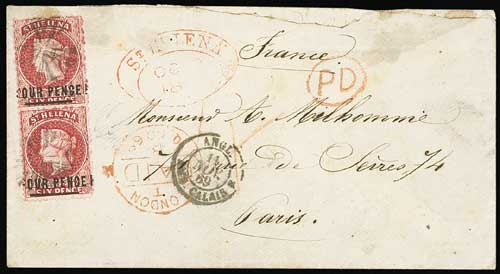 ST. HELENA
OUR PENCE
SIX PENCE
ST. HELENA
OUR PENCE
SIX PENCE
ST HELENA
France
PD
Monsieur A. Malhomme
74 Rue de Sèvres, 74
Paris.
LONDON
PAID
ANGL.
CALAIS